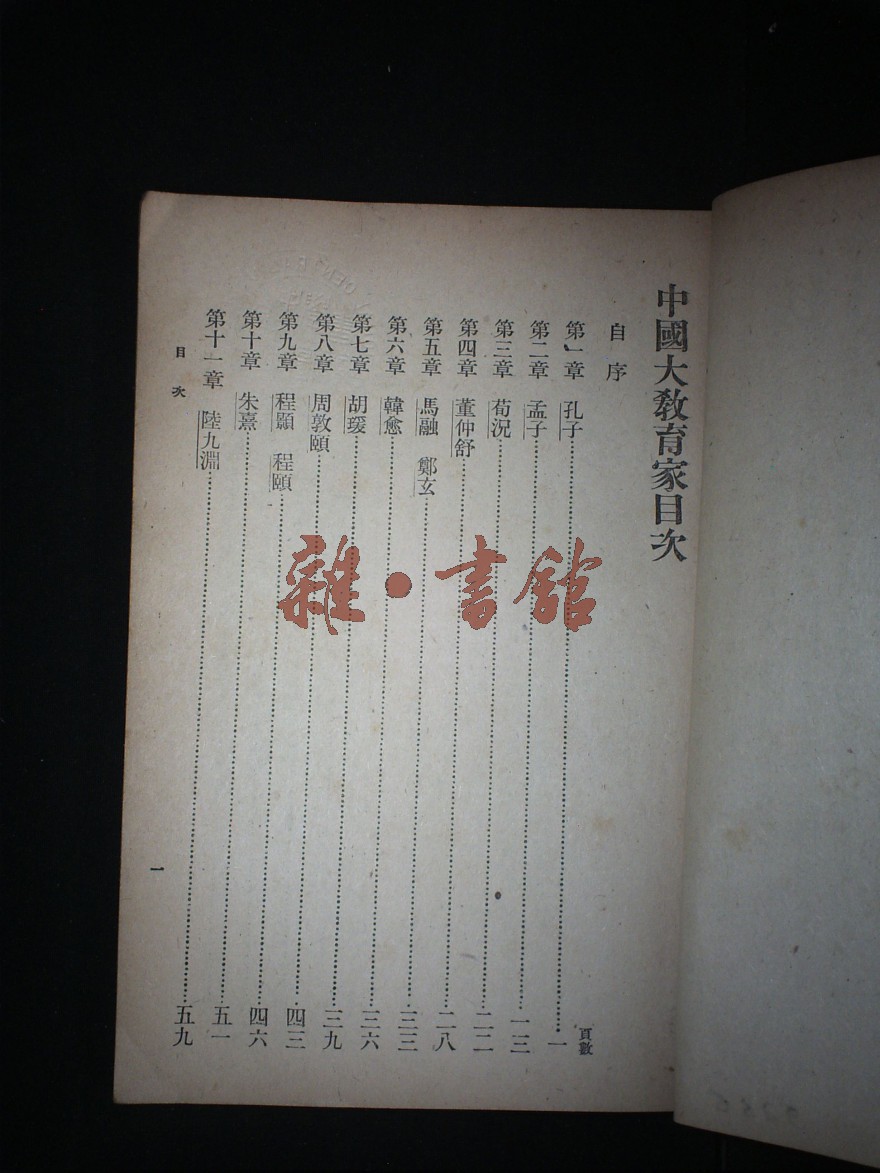 中國大教育家目次
自序
頁數
第一章 孔子……一
第二章 孟子……一三
第三章 荀況……二二
第四章 董仲舒……二八
第五章 馬融 鄭玄……三三
第六章 韓愈……三六
第七章 胡瑗……三九
第八章 周敦頤……四三
第九章 程顥 程頤……四六
第十章 朱熹……五一
第十一章 陸九淵……五九
目次
一
雜·書館